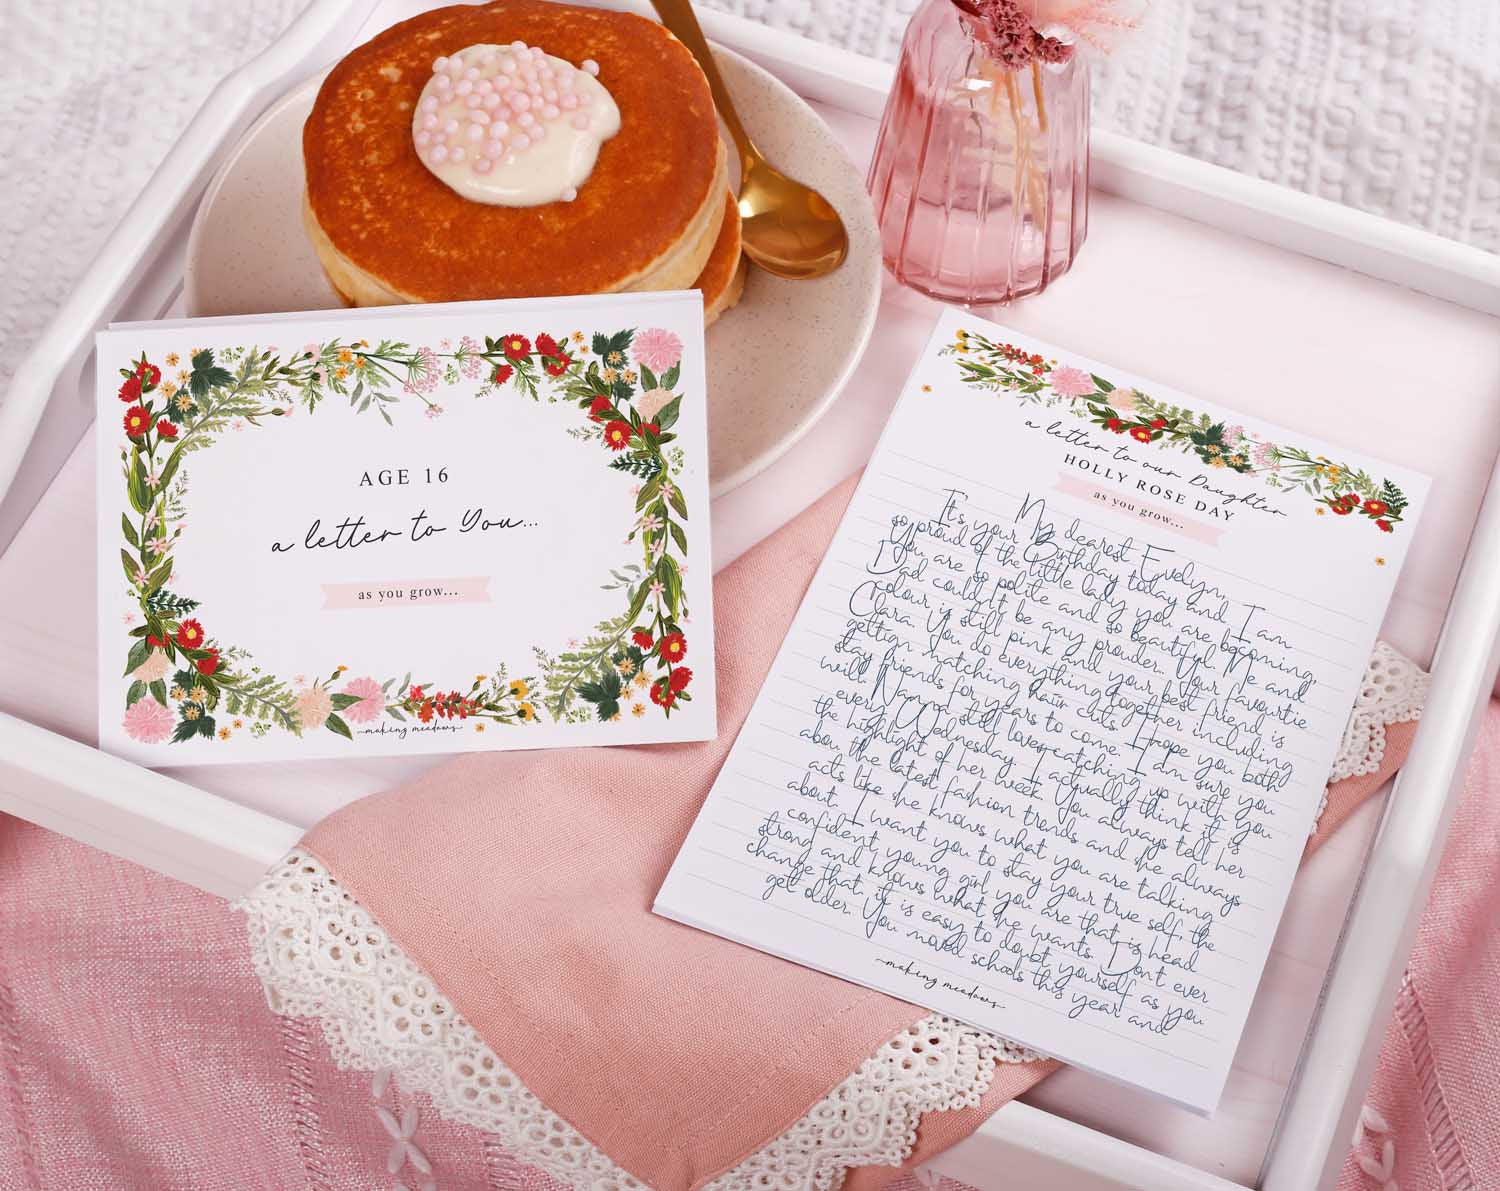 AGE 16
a letter to You...
as you grow...
making meadows
a letter to our Daughter
HOLLY ROSE DAY
as you grow...
My dearest Evelyn,
It's your Birthday today and I am
so proud of the little lady you are becoming,
You are so polite and so beautiful. Me and
Dad couldn't be any prouder. Your favourtie
colour is still pink and your best friend is
Clara. You do everything together including
gettign matching hair cuts. I hope you both
stay friends for years to come. I am sure you
will. Nanna still loves catching up with you
every Wednesday. I actually think it is
the highlight of her week. You always tell her
abou the latest fashion trends and she always
acts like she knows what you are talking
about. I want you to stay your true self, the
confident young girl you are that is head
strong and knows what she wants. Don't ever
change that, it is easy to doubt yourself as you
get older. You moved schools this year and
making meadows